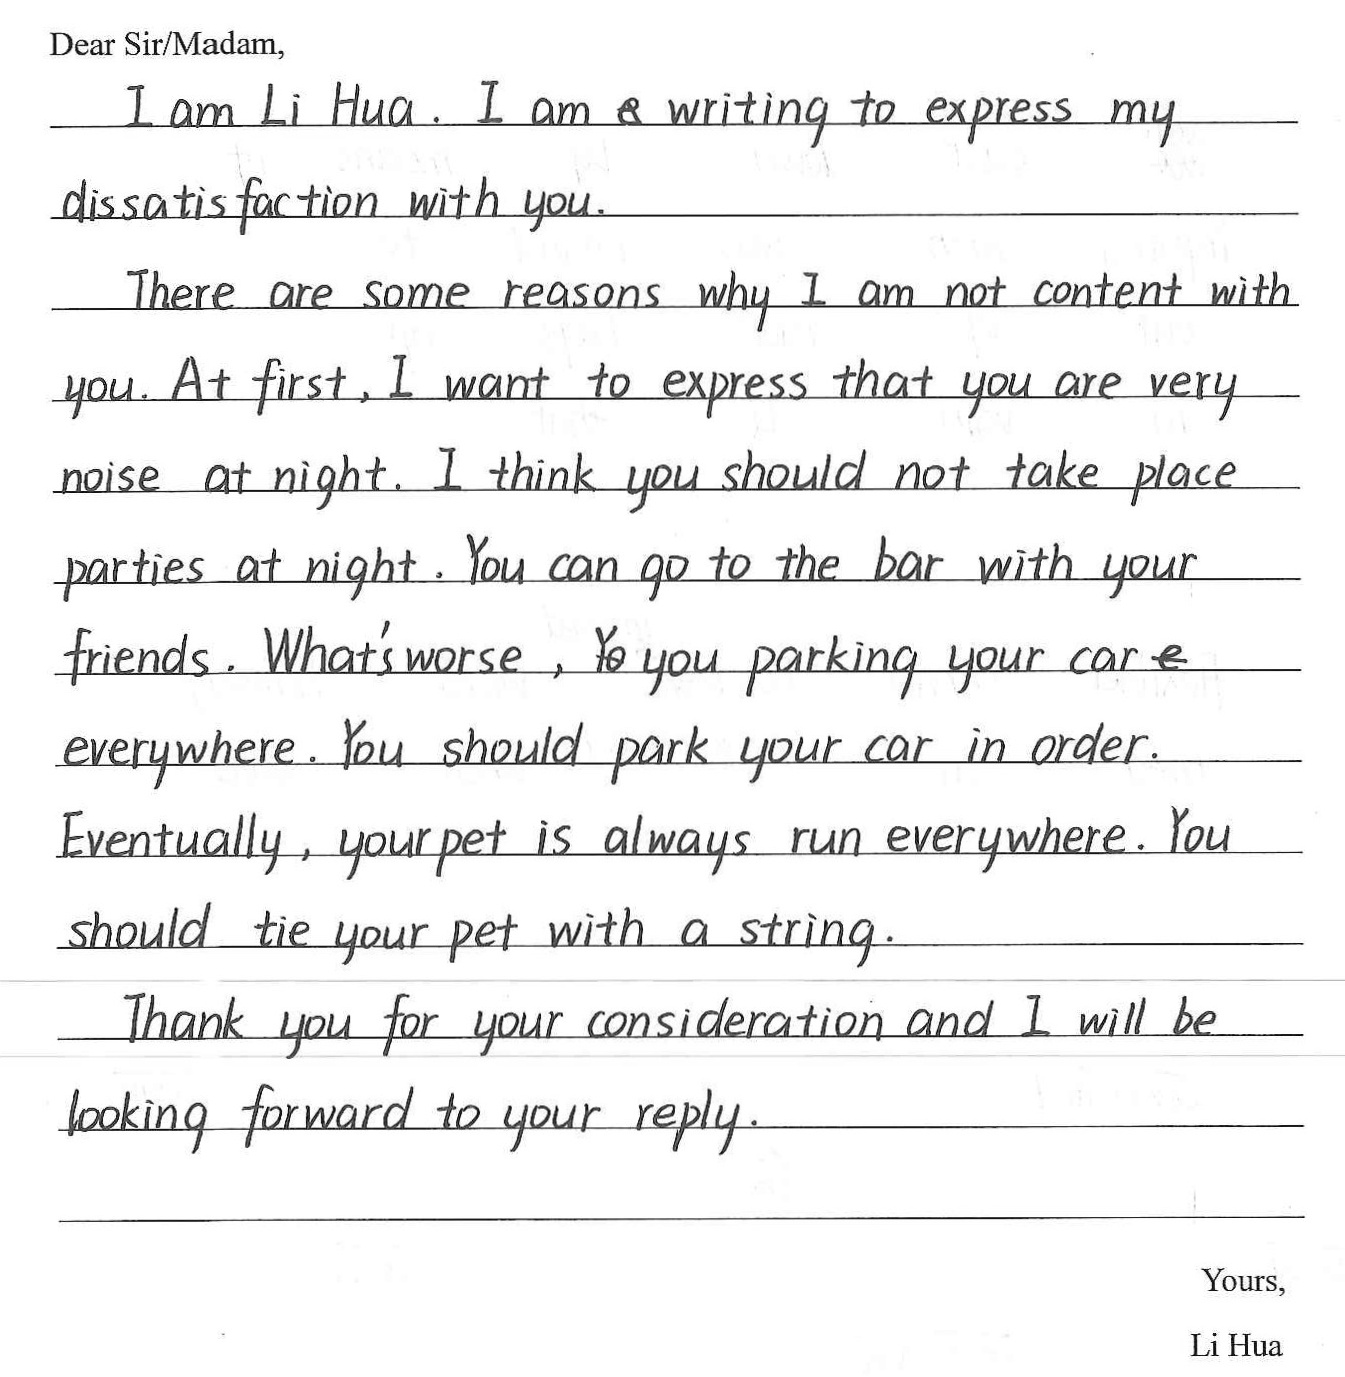 Dear Sir/Madam,
I am Li Hua. I am writing to express my
dissatisfaction with you.
There are some reasons why I am not content with
you. At first, I want to express that you are very
noise at night. I think you should not take place
parties at night. You can go to the bar with your
friends. What's worse, you parking your car
everywhere. You should park your car in order.
Eventually, your pet is always run everywhere. You
should tie your pet with a string.
Thank you for your consideration and I will be
looking forward to your reply.
Yours,
Li Hua